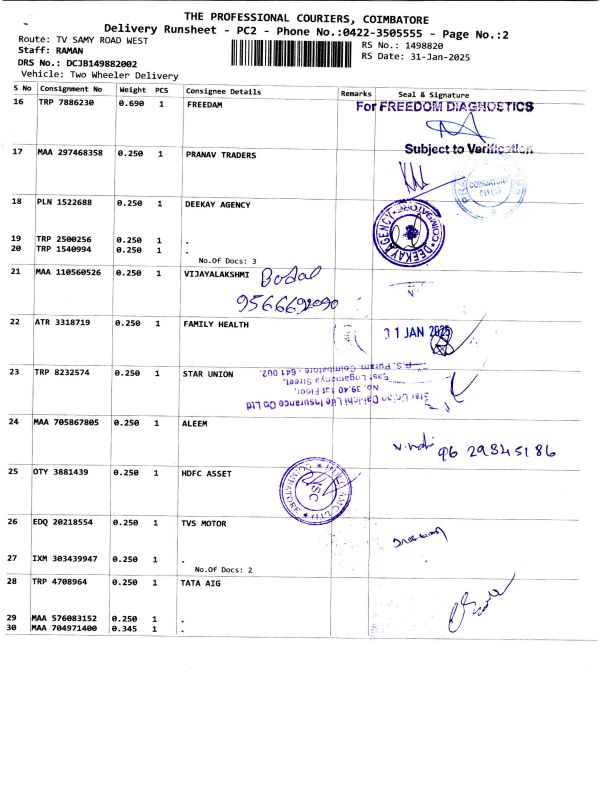 THE PROFESSIONAL COURIERS, COIMBATORE
Delivery Runsheet - PC2 - Phone No.:0422-3505555 - Page No.:2
Route: TV SAMY ROAD WEST
RS No.: 1498820
Staff: RAMAN
RS Date: 31-Jan-2025
DRS No.: DCJB149882002
Vehicle: Two Wheeler Delivery
S No Consignment No Weight PCS Consignee Details Remarks Seal & Signature
16 TRP 7886230 0.690 1 FREEDAM
For FREEDOM DIAGNOSTICS
Subject to Verification
17 MAA 297468358 0.250 1 PRANAV TRADERS
COIMBATORE
18 PLN 1522688 0.250 1 DEEKAY AGENCY
DEEKAY AGENCY COIMBATORE
19 TRP 2500256 0.250 1 .
20 TRP 1540994 0.250 1 .
No.Of Docs: 3
21 MAA 110560526 0.250 1 VIJAYALAKSHMI
9566692090
22 ATR 3318719 0.250 1 FAMILY HEALTH
31 JAN 2025
23 TRP 8232574 0.250 1 STAR UNION
Star Union Daiichi Life Insurance Co Ltd
No. 39,40 1st Floor,
East Logamanya Street,
R.S. Puram, Coimbatore - 641 002.
24 MAA 705867805 0.250 1 ALEEM
96 29845186
25 OTY 3881439 0.250 1 HDFC ASSET
26 EDQ 20218554 0.250 1 TVS MOTOR
27 IXM 303439947 0.250 1 .
No.Of Docs: 2
28 TRP 4708964 0.250 1 TATA AIG
29 MAA 576083152 0.250 1 .
30 MAA 704971400 0.345 1 .